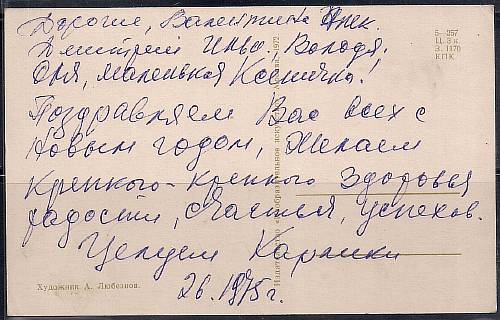 Дорогие, Валентина
Дмитрий Ильич. Володя.
Оля, маленькая Ксеничка!
Поздравляем Вас всех с
Новым годом, Желаем
Крепкого-крепкого Здоровья
радости, Счастья, успехов.
Целуем
26. 1975 г.
Художник А. Любезнов.
5—257
Ц. 3 к.
З. 1170
КПК
Издательство «Изобразительное искусство». Москва. 1972